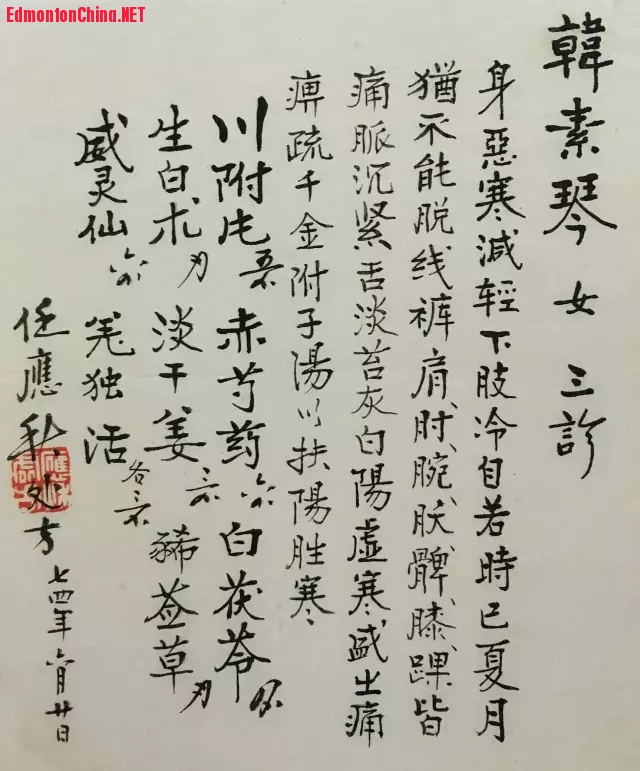 EdmontonChina.NET
韓素琴 女 三診
身惡寒減輕下肢冷自若時已夏月
猶不能脱线裤肩、肘、腕、髀、膝、踝皆
痛脈沉紧舌淡苔灰白陽虛寒盛之痛
痹疏千金附子湯以扶陽胜寒
川附片 赤芍药 白茯苓
生白术 淡干姜 豨莶草
威灵仙 羌独活 各
任應秋处方 七四年六月廿日